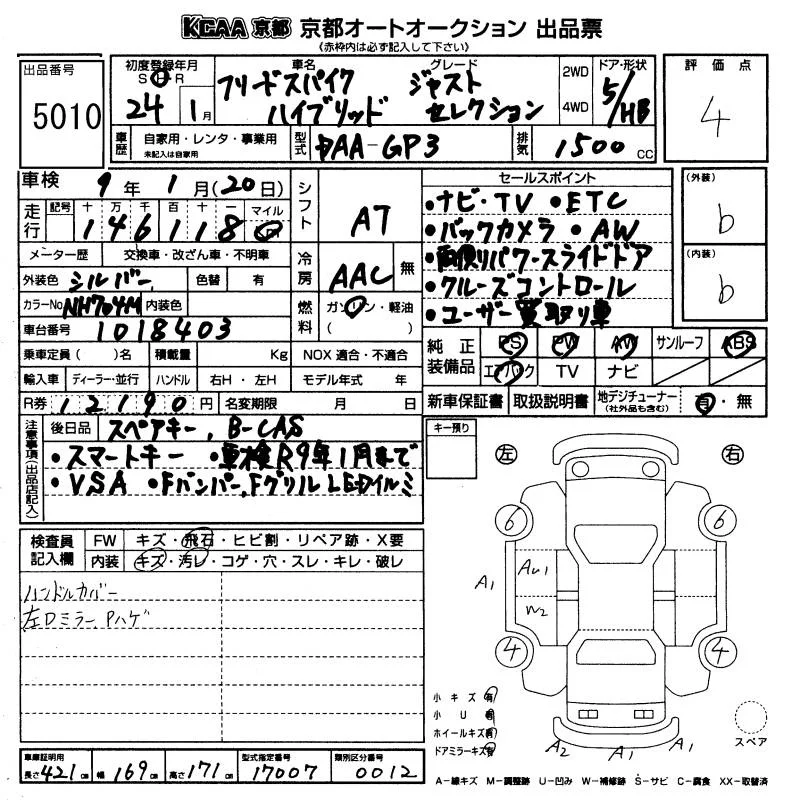 KCAA 京都 京都オートオークション 出品票
《赤枠内は必ず記入して下さい》
出品番号
5010
初度登録年月
S H R
24 1月
車名 グレード
フリードスパイク ジャスト
ハイブリッド セレクション
2WD
4WD
ドア・形状
5/HB
評価点
4
車歴
自家用・レンタ・事業用
未記入は自家用
型式
DAA-GP3
排気
1500 CC
車検 9年 1月(20日)
走行
記号 十 万 千 百 十 一 マイル
146118
シフト
AT
セールスポイント
・ナビ・TV ・ETC
・バックカメラ ・AW
・両側パワースライドドア
・クルーズコントロール
・ユーザー買取り車
(外装)
b
(内装)
b
メーター歴 交換車・改ざん車・不明車
外装色 シルバー 色替 有
冷房
AAC 無
カラーNo NH704M 内装色
燃料
ガソリン・軽油
( )
車台番号 1018403
乗車定員( )名 積載量 Kg NOX適合・不適合
輸入車 ディーラー・並行 ハンドル 右H・左H モデル年式 年
R券 12190円 名変期限 月 日
純正装備品
PS PW AW サンルーフ ABS
エアバック TV ナビ
新車保証書 取扱説明書 地デジチューナー 有・無
(社外品も含む)
注意事項(出品店記入)
後日品 スペアキー、B-CAS
・スマートキー ・車検R9年1月まで
・VSA ・Fバンパー、Fグリル LEDイルミ
キー預り
左 右
検査員記入欄
FW キズ・飛石・ヒビ割・リペア跡・X要
内装 キズ・汚レ・コゲ・穴・スレ・キレ・破レ
ハンドルカバー
左Dミラー Pハゲ
6 6
A1 AU1
W2
4 4
小キズ 有
小U 有
ホイールキズ 有
ドアミラーキズ 有
A2 A1 A1
スペア
車庫証明用
長さ 421cm 幅 169cm 高さ 171cm
型式指定番号
17007
類別区分番号
0012
A-線キズ M-調整跡 U-凹み W-補修跡 S-サビ C-腐食 XX-取替済